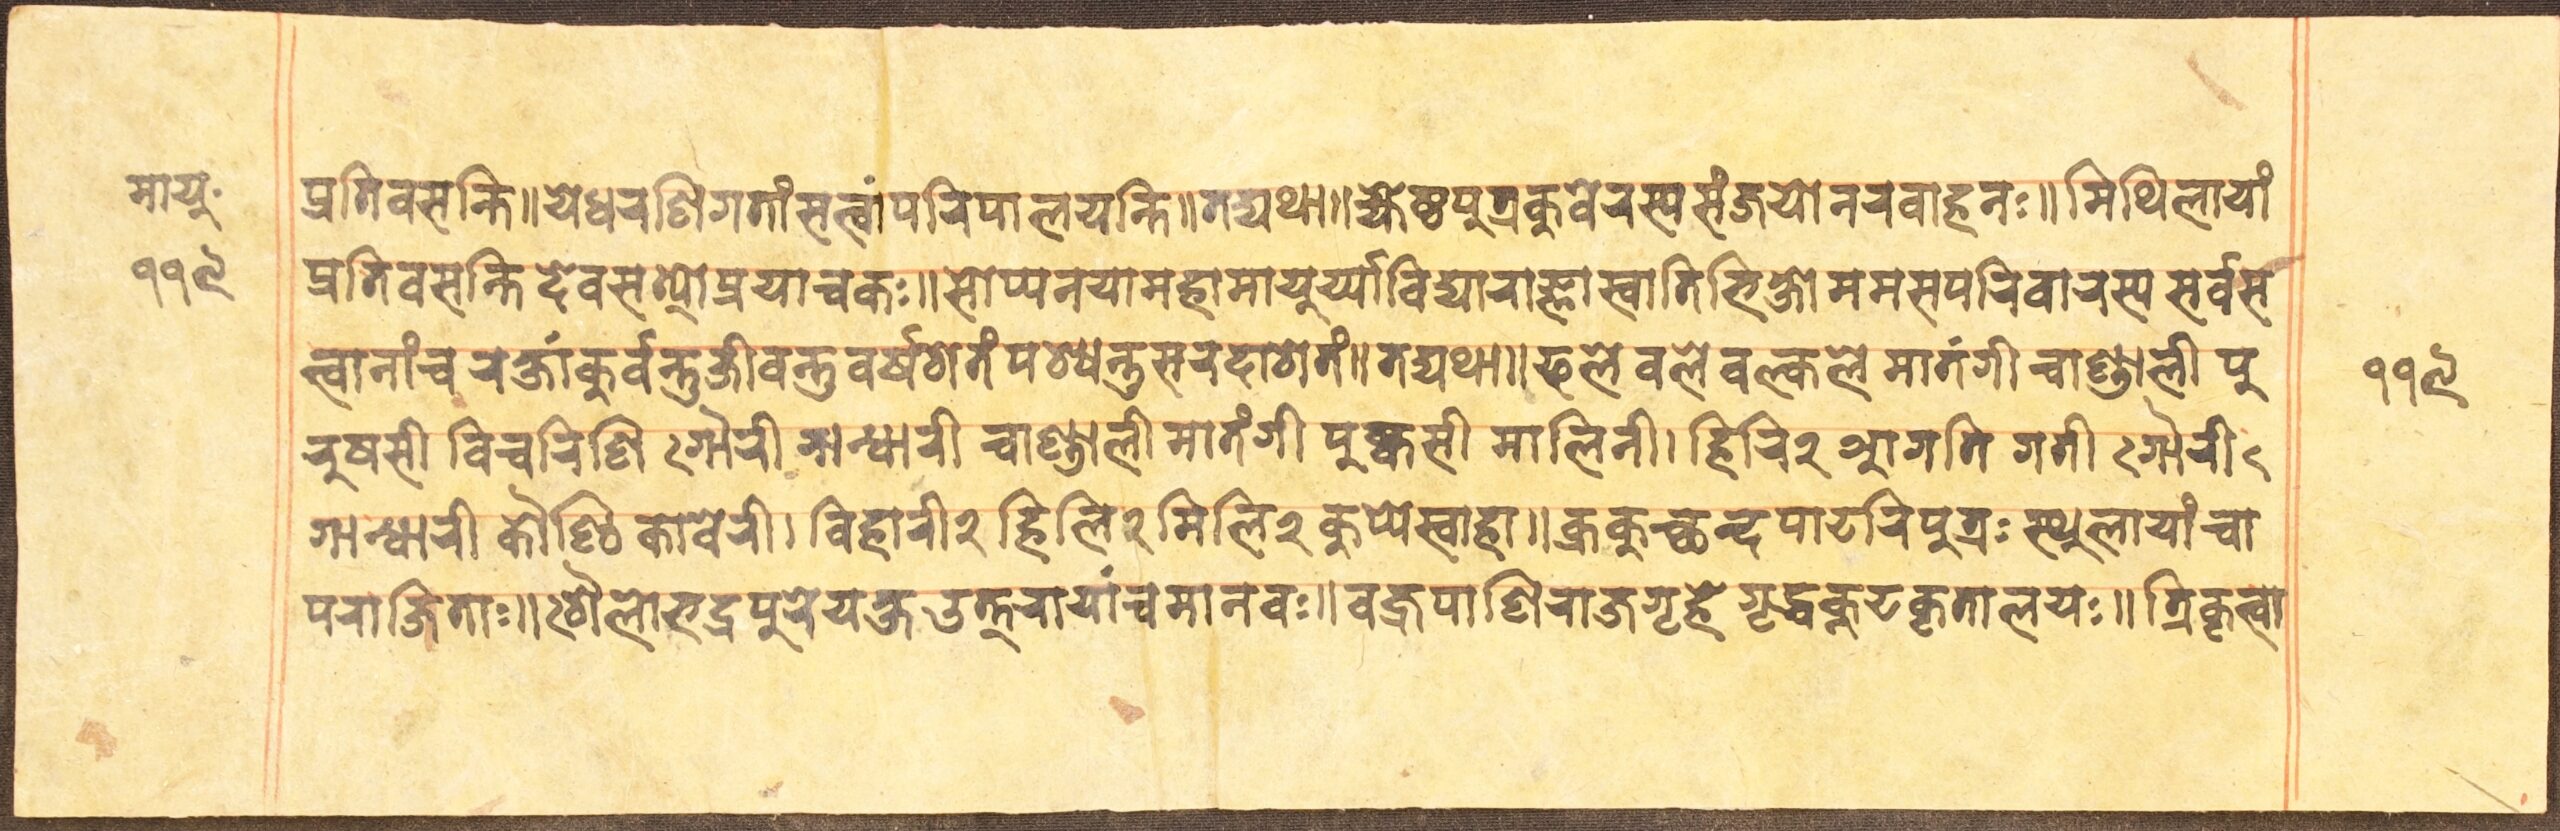 मायु॰
११९
प्रतिवसन्ति॥येधरणिगतांसत्वांपरिपालयन्ति॥तद्यथा॥ज्येष्ठपुत्रकुवेरस्यसंजयोनरवाहनः॥मिथिलायां
प्रतिवसन्तिदेवसत्योप्रयाचकः॥सोप्यनयामहामायुर्य्याविद्याराज्ञास्वातिभिक्षोममसपरिवारस्यसर्वस
त्वानांचरक्षांकुर्वन्तुजीवन्तुवर्षशतंपश्यन्तुसरदाशतं॥तद्यथा॥फलेवलेवल्कलेमातंगीचाण्डालीपु
रुषसी विचरिणि गौरी गान्धारी चाण्डाली मातंगी पुक्कसी मालिनी। हिरि२ आगति गती गौरी
गान्धारी कौष्ठि कावेरी। विहारी२ हिलि२ मिलि२ कुप्येस्वाहा॥क्रकुच्छन्दपाटरिपुत्रः स्थुलायांचा
पराजिताः॥शैलोभद्रपुरेयक्षउत्तरायांचमानवः॥वज्रपाणिराजगृहे गृद्धकूटकृतालयः॥त्रिकृत्वा
११९